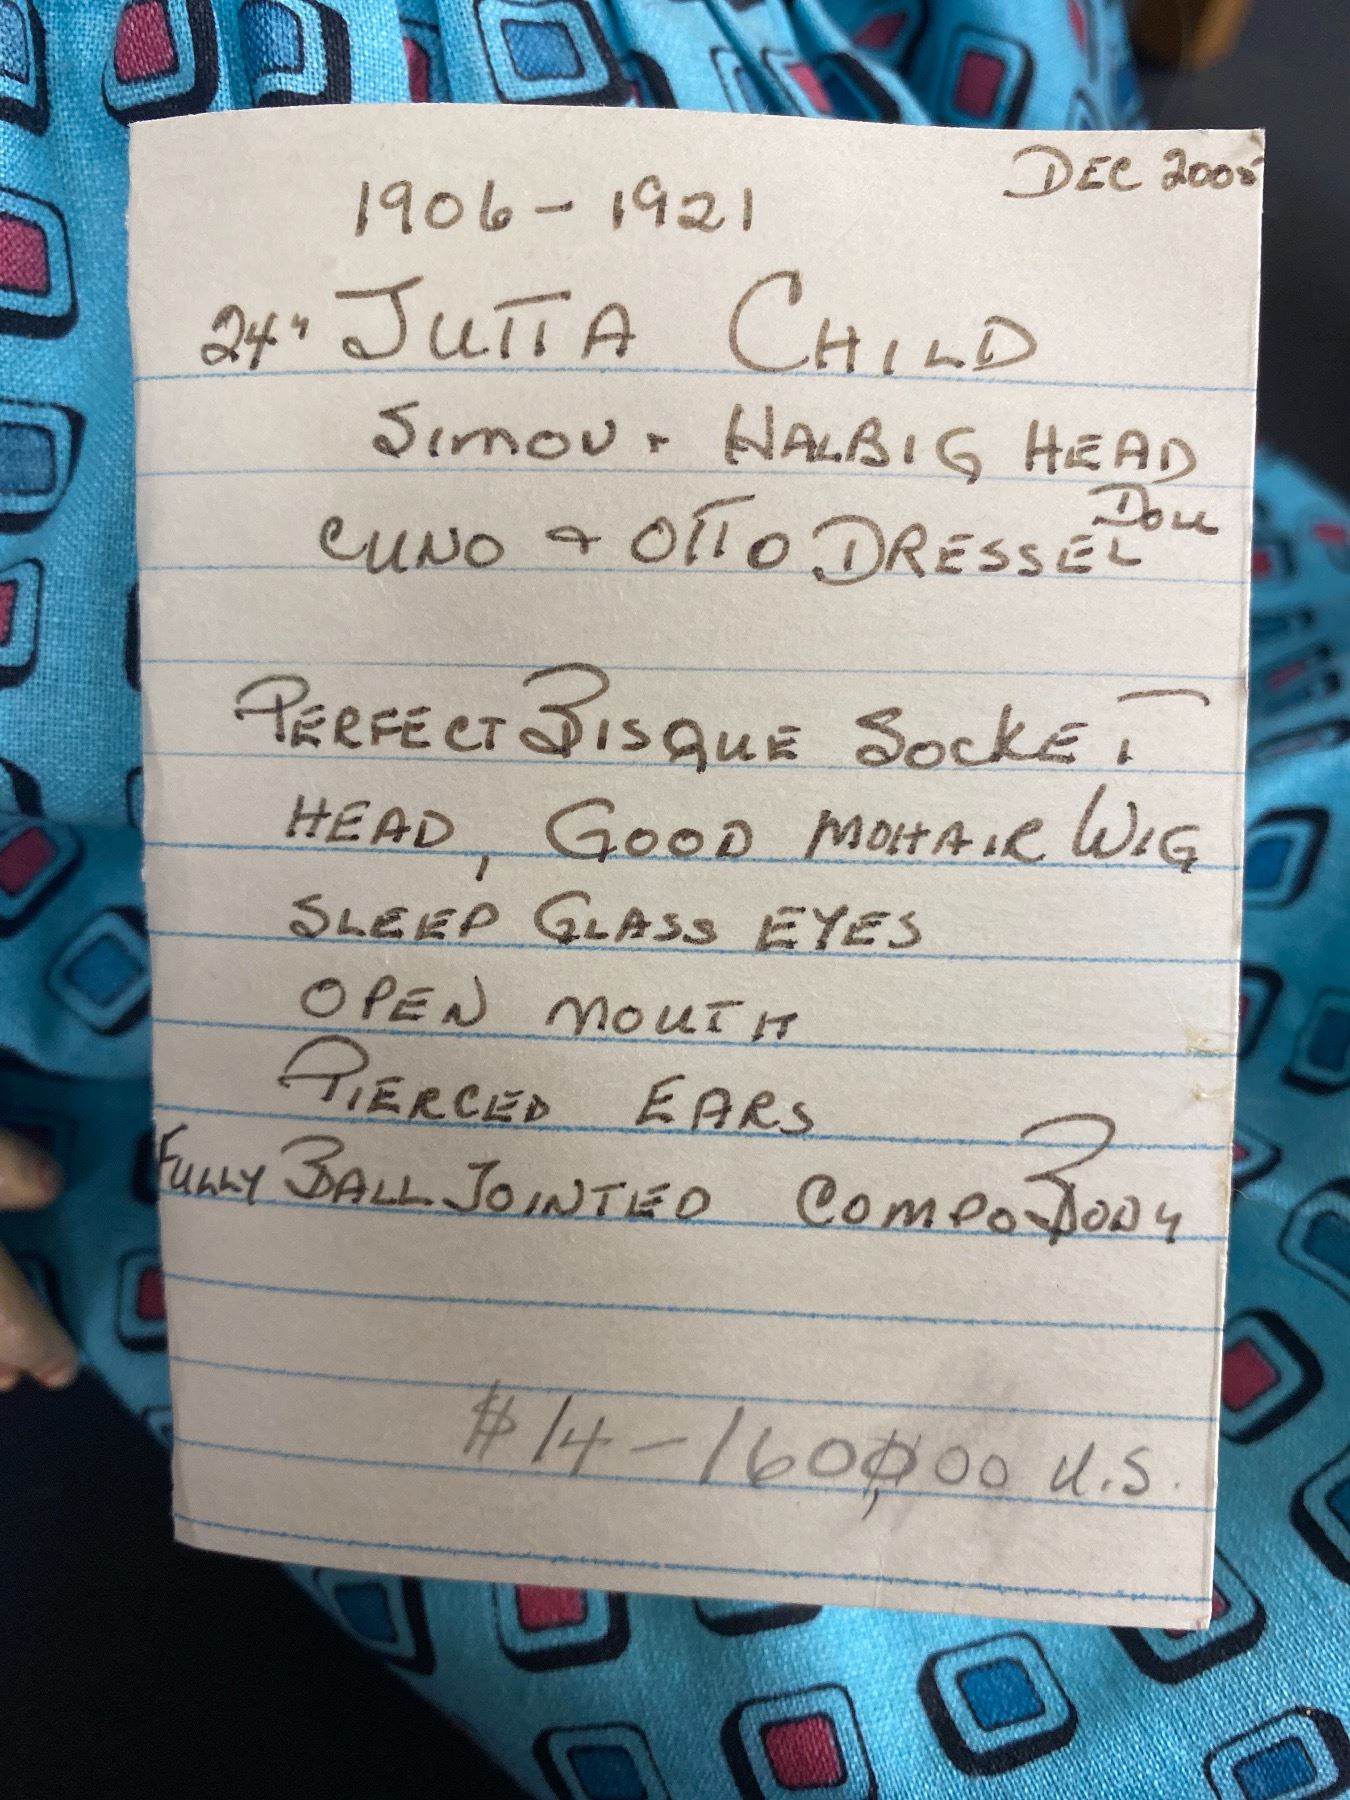 DEC 2005
1906 - 1921
24" JUTTA CHILD
SIMON + HALBIG HEAD
CUNO + OTTO DRESSEL DOLL
PERFECT BISQUE SOCKET
HEAD, GOOD MOHAIR WIG
SLEEP GLASS EYES
OPEN MOUTH
PIERCED EARS
FULLY BALL JOINTED COMPO BODY
U.S.